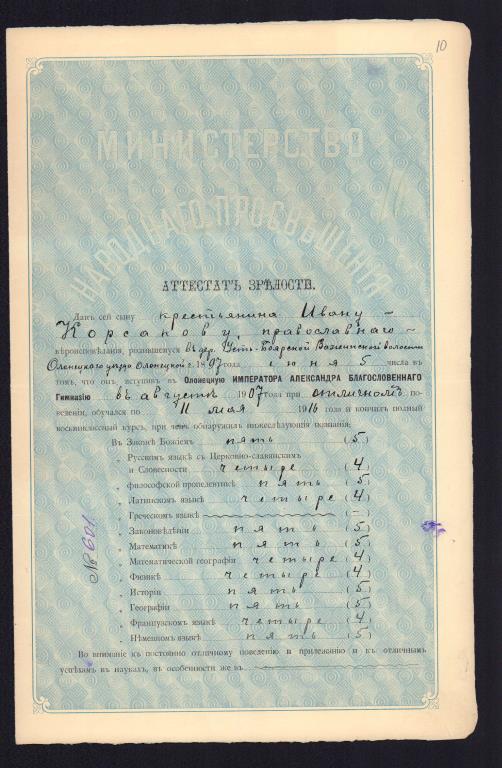 10
МИНИСТЕРСТВО
НАРОДНАГО ПРОСВѢЩЕНІЯ
АТТЕСТАТЪ ЗРѢЛОСТИ.
Данъ сей сыну крестьянина Ивану
Корсакову, православнаго
вѣроисповѣданія, родившемуся въ дер. Усть-Боярской Важинской волости
Олонецкаго уѣзда Олонецкой г. 1897 года іюня 5 числа въ
томъ, что онъ, вступивъ въ Олонецкую ИМПЕРАТОРА АЛЕКСАНДРА БЛАГОСЛОВЕННАГО
Гимназію въ августѣ 1907 года при отличномъ по-
веденіи, обучался по 11 мая 1916 года и кончилъ полный
восьмиклассный курсъ, при чемъ обнаружилъ нижеслѣдующія познанія:
Въ Законѣ Божіемъ пять (5)
„ Русскомъ языкѣ съ Церковно-славянскимъ
и Словесности четыре (4)
„ философской пропедевтикѣ пять (5)
„ Латинскомъ языкѣ четыре (4)
„ Греческомъ языкѣ (–)
„ Законовѣдѣніи пять (5)
„ Математикѣ пять (5)
„ Математической географіи четыре (4)
„ Физикѣ четыре (4)
„ Исторіи пять (5)
„ Географіи пять (5)
„ Французскомъ языкѣ четыре (4)
„ Нѣмецкомъ языкѣ пять (5)
Во вниманіе къ постоянно отличному поведенію и прилежанію и къ отличнымъ
успѣхамъ въ наукахъ, въ особенности же въ
№ 601